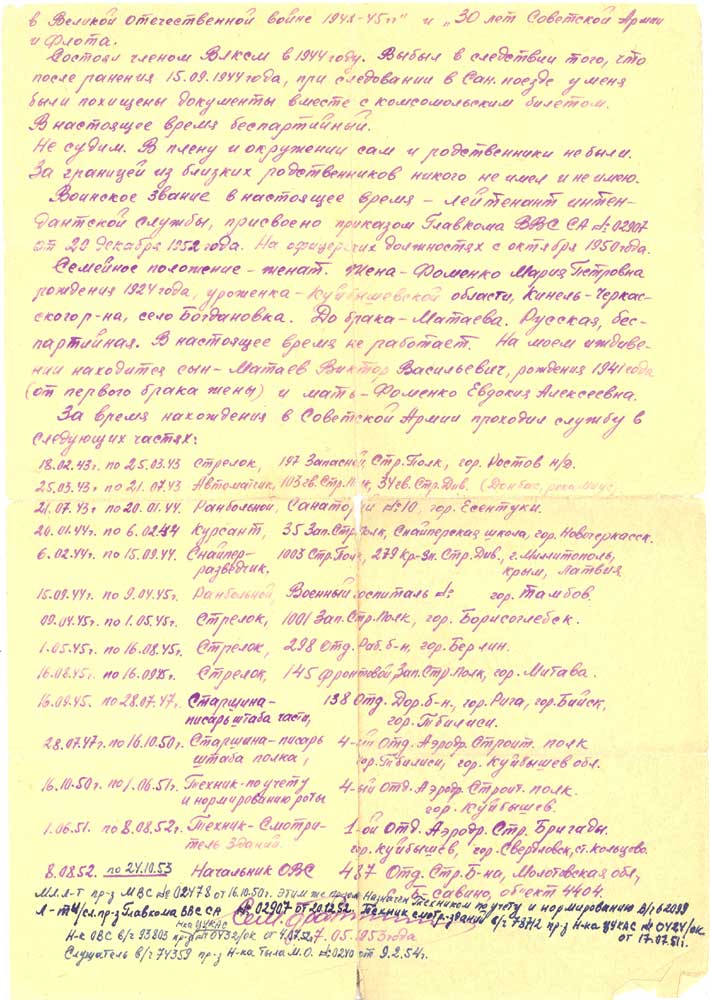 в Великой отечественной войне 1941-45гг" и „30 лет Советской Армии
и Флота.
Состоял членом Влксм в 1944 году. Выбыл в следствии того, что
после ранения 15.09.1944 года, при следовании в Сан. поезде у меня
были похищены документы вместе с комсомольским билетом.
В настоящее время беспартийный.
Не судим. В плену и окружении сам и родственники не были.
За границей из близких родственников никого не имел и не имею.
Воинское звание в настоящее время – лейтенант интен-
дантской службы, присвоено приказом Главкома ВВС СА № 02907
от 29 декабря 1952 года. На офицерских должностях с октября 1950 года.
Семейное положение – женат. Жена – Фоменко Мария Петровна
рождения 1924 года, уроженка – Куйбышевской области, Кинель-Черкас-
ского р-на, село Богдановка. До брака – Матаева. Русская, бес-
партийная. В настоящее время не работает. На моем иждиве-
нии находится сын – Матаев Виктор Васильевич, рождения 1941 года
(от первого брака жены) и мать – Фоменко Евдокия Алексеевна.
За время нахождения в Советской Армии проходил службу в
следующих частях:
18.02.43г. по 25.03.43 стрелок, 197 Запасной, Стр. Полк, гор. Ростов н/д.
25.03.43г. по 21.07.43 Автоматчик, 103 гв. Стр. Полк, 34 гв. Стр. Див. (Донбас, река Миус)
21.07.43г по 20.01.44. Ранбольной, Санаторий №10, гор. Есентуки.
20.01.44г по 6.02.44 Курсант, 35 Зап. Стр. Полк, Снайперская школа, гор. Новочеркасск.
6.02.44г. по 15.09.44. Снайпер- 1003 Стр. Полк, 279 Кр-Зн. Стр. Див., г. Миллитополь,
разведчик. Крым, Латвия.
15.09.44г по 9.04.45г. Ранбольной, Военный госпиталь №: гор. Тамбов.
09.04.45г по 1.05.45г. Стрелок, 1001 Зап. Стр. Полк, гор. Борисоглебск.
1.05.45г по 16.08.45г. Стрелок, 298 Отд. Раб. б-н, гор. Берлин.
16.08.45г. по 16.09.45г. Стрелок, 145 фронтовой, Зап. Стр. Полк, гор. Митава.
16.09.45. по 28.07.47г. Старшина- 138 Отд. Дор. б-н., гор. Рига, гор. Бийск,
писарь штаба части, гор. Тбилиси.
28.07.47г. по 16.10.50г. Старшина-писарь 4-ый Отд. Аэродр. Строит. полк
штаба полка, гор. Тбилиси, гор. Куйбышев обл.
16.10.50г по 1.06.51г. Техник-по учету 4-ый Отд. Аэродр. Строит. полк.
и нормированию роты гор. Куйбышев.
1.06.51. по 8.08.52г. Техник-Смотри- 1-ой Отд. Аэродр. Стр. Бригады.
тель зданий. гор. Куйбышев, гор. Свердловск, ст. Кольцово.
8.08.52. по 24.10.53 Начальник ОВС 487 Отд. Стр. Б-на, Молотовская обл,
С. Б-Савино, объект 4404.
Мл. л-т пр-з МВС №02478 от 16.10.50г. Этим же пр-зом Назначен Техником по учету и нормированию В/ч 62099
Л-т и/сл. пр-з Главкома ВВС СА № 02907 от 29.12.52. Техник смотр. зданий в/ч 73712 пр-з Н-ка ЦУКАС № 0424/ок
от 17.07.51г.
Н-ка ЦУКАС
Н-к ОВС в/ч 93803 пр-з № 0432/ок от 4.07.52г. 7.05.1953 года
Слушатель в/ч 74359 пр-з Н-ка Тыла М.О. №0240 от 9.2.54г.